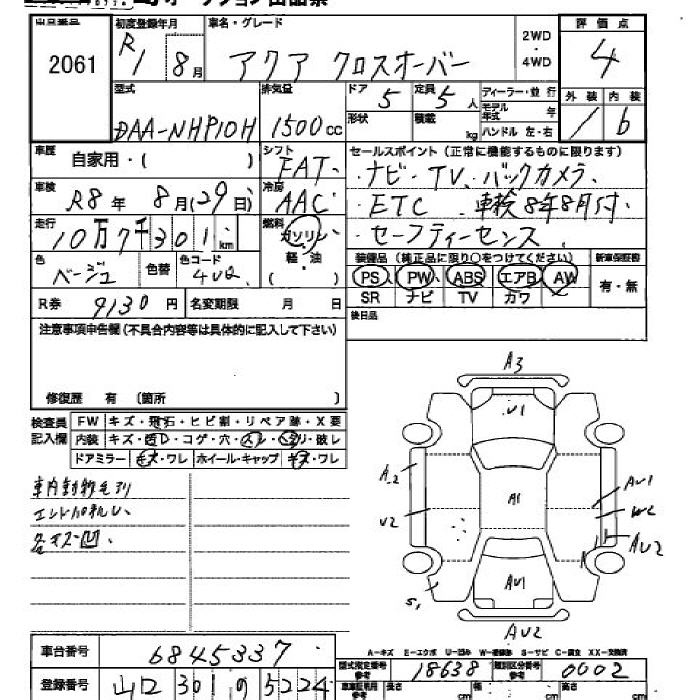 出品番号 初度登録年月 車名・グレード 2WD・4WD 評価点
2061 R1 8月 アクア クロスオーバー 4
型式 排気量 ドア 定員 ディーラー・並行 外装 内装
DAA-NHP10H 1500cc 5 5人 モデル年式 年
形状 積載 kg ハンドル 左・右 b
車歴 自家用・( ) シフト FAT セールスポイント(正常に機能するものに限ります)
車検 R8年 8月(29日) 冷房 AAC ・ナビ・TV.バックカメラ.
・ETC .車検8年8月付.
走行 10万7千301km 燃料 ガソリン・軽・油 ( ) ・セーフティーセンス.
色 ベージュ 色替 色コード 4V2 装備品(純正品に限り○をつけてください) 新車保証書
PS PW ABS エアB AW 有・無
SR ナビ TV カワ
R券 9130円 名変期限 月 日 後日品
注意事項申告欄(不具合内容等は具体的に記入して下さい)
修復歴 有 〔箇所 〕
検査員記入欄 FW キズ・飛石・ヒビ割・リペア跡・X要
内装 キズ・コゲ・穴・破レ
ドアミラー キズ・ワレ ホイール・キャップ キズ・ワレ
A3
U1
A2 AU1
A1 W2
U2 AU2
S1 AU1
AU2
A-キズ E-エクボ U-凹み W-補修跡 S-サビ C-腐食 XX-交換済
車台番号 6845337 型式指定番号 参考 18638 類別区分番号 参考 0002
登録番号 山口 301 の 5224 長さ cm 幅 cm 高さ cm